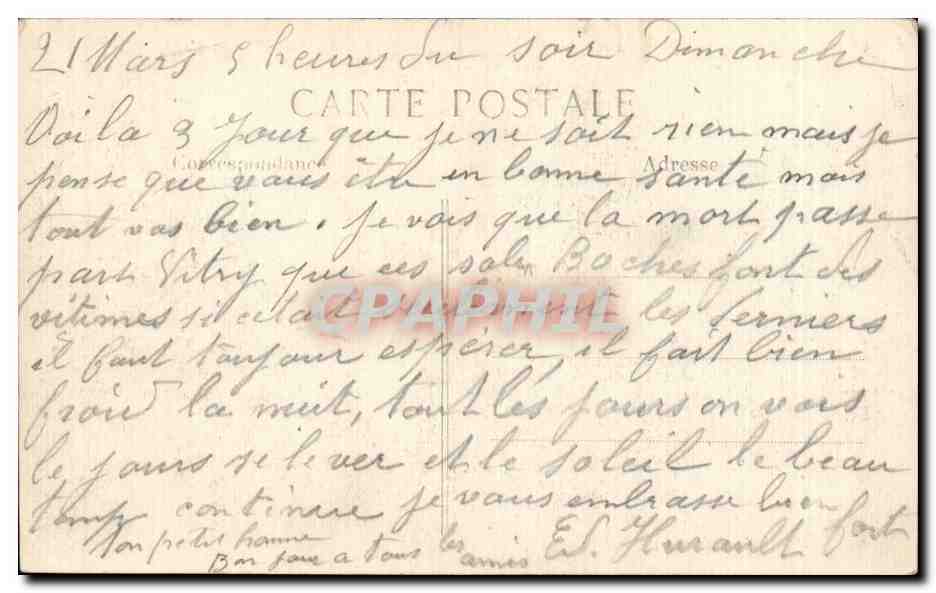 21 Mars 5 heures du soir Dimanche
CARTE POSTALE
Voila 3 jour que je ne soit rien mais je
Correspondance
Adresse
pense que vous ête en bonne santé mois
tout vas bien. je vois que la mort passe
part Vitry que ces sale Boches font des
vitimes si cetait seulement les derniers
CPAPHIL
il faut toujour espérer, il fait bien
froid la nuit, tout les jours on vois
le jours se lever et le soleil le beau
temps continue je vous embrasse bien
fort
ton petit homme
Ed. Hurault
Bon jour a tous les amis